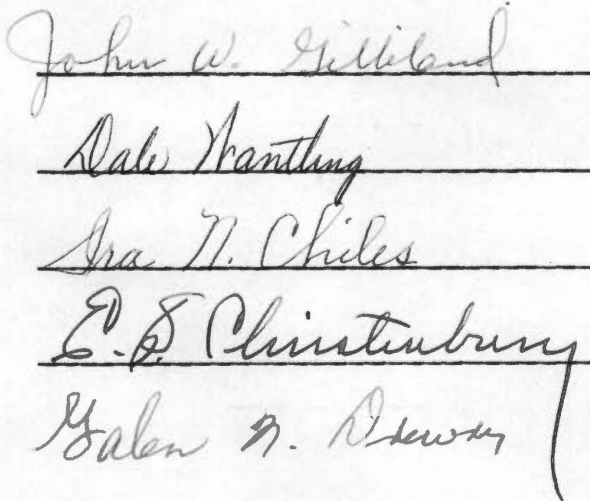 John W. Gilliland
Dale Wantling
Ira N. Chiles
E. S. Christenbury
Galen N. Drewry